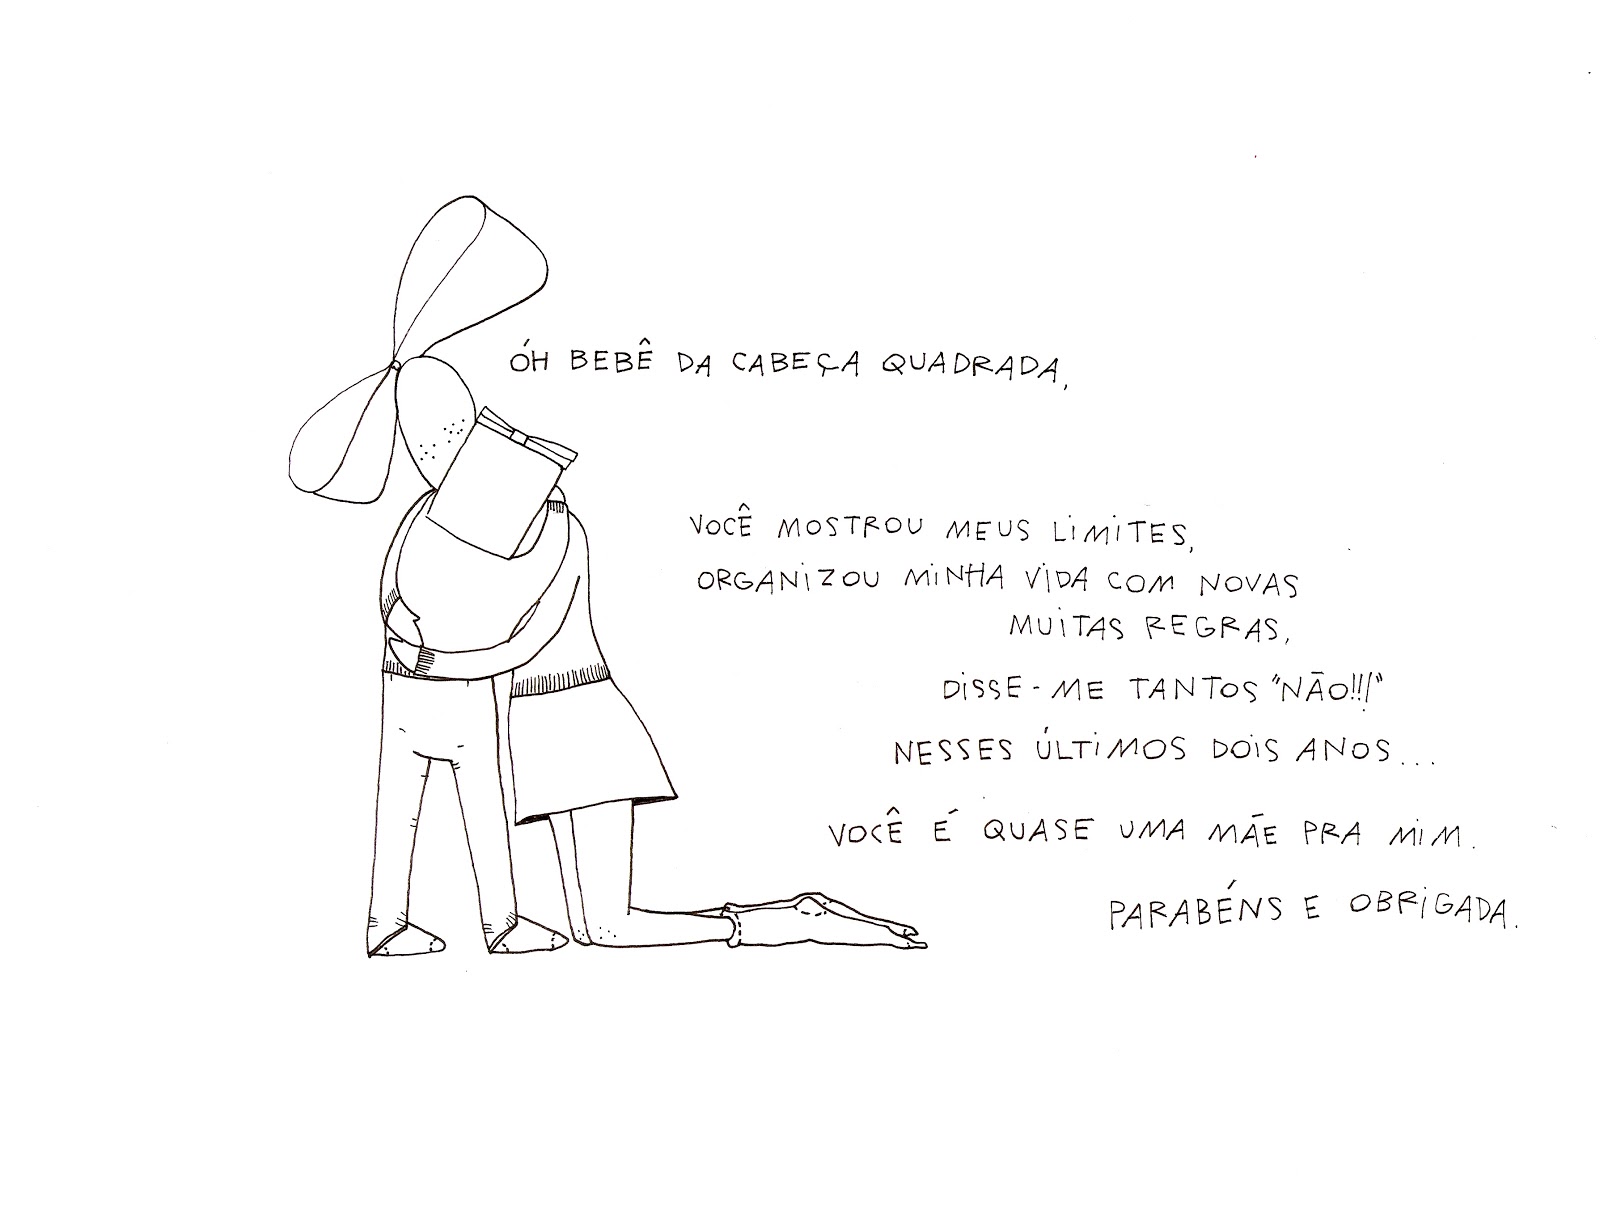 ÓH BEBÊ DA CABEÇA QUADRADA,
VOCÊ MOSTROU MEUS LIMITES,
ORGANIZOU MINHA VIDA COM NOVAS
MUITAS REGRAS,
DISSE-ME TANTOS "NÃO!!!"
NESSES ÚLTIMOS DOIS ANOS...
VOCÊ É QUASE UMA MÃE PRA MIM.
PARABÉNS E OBRIGADA.